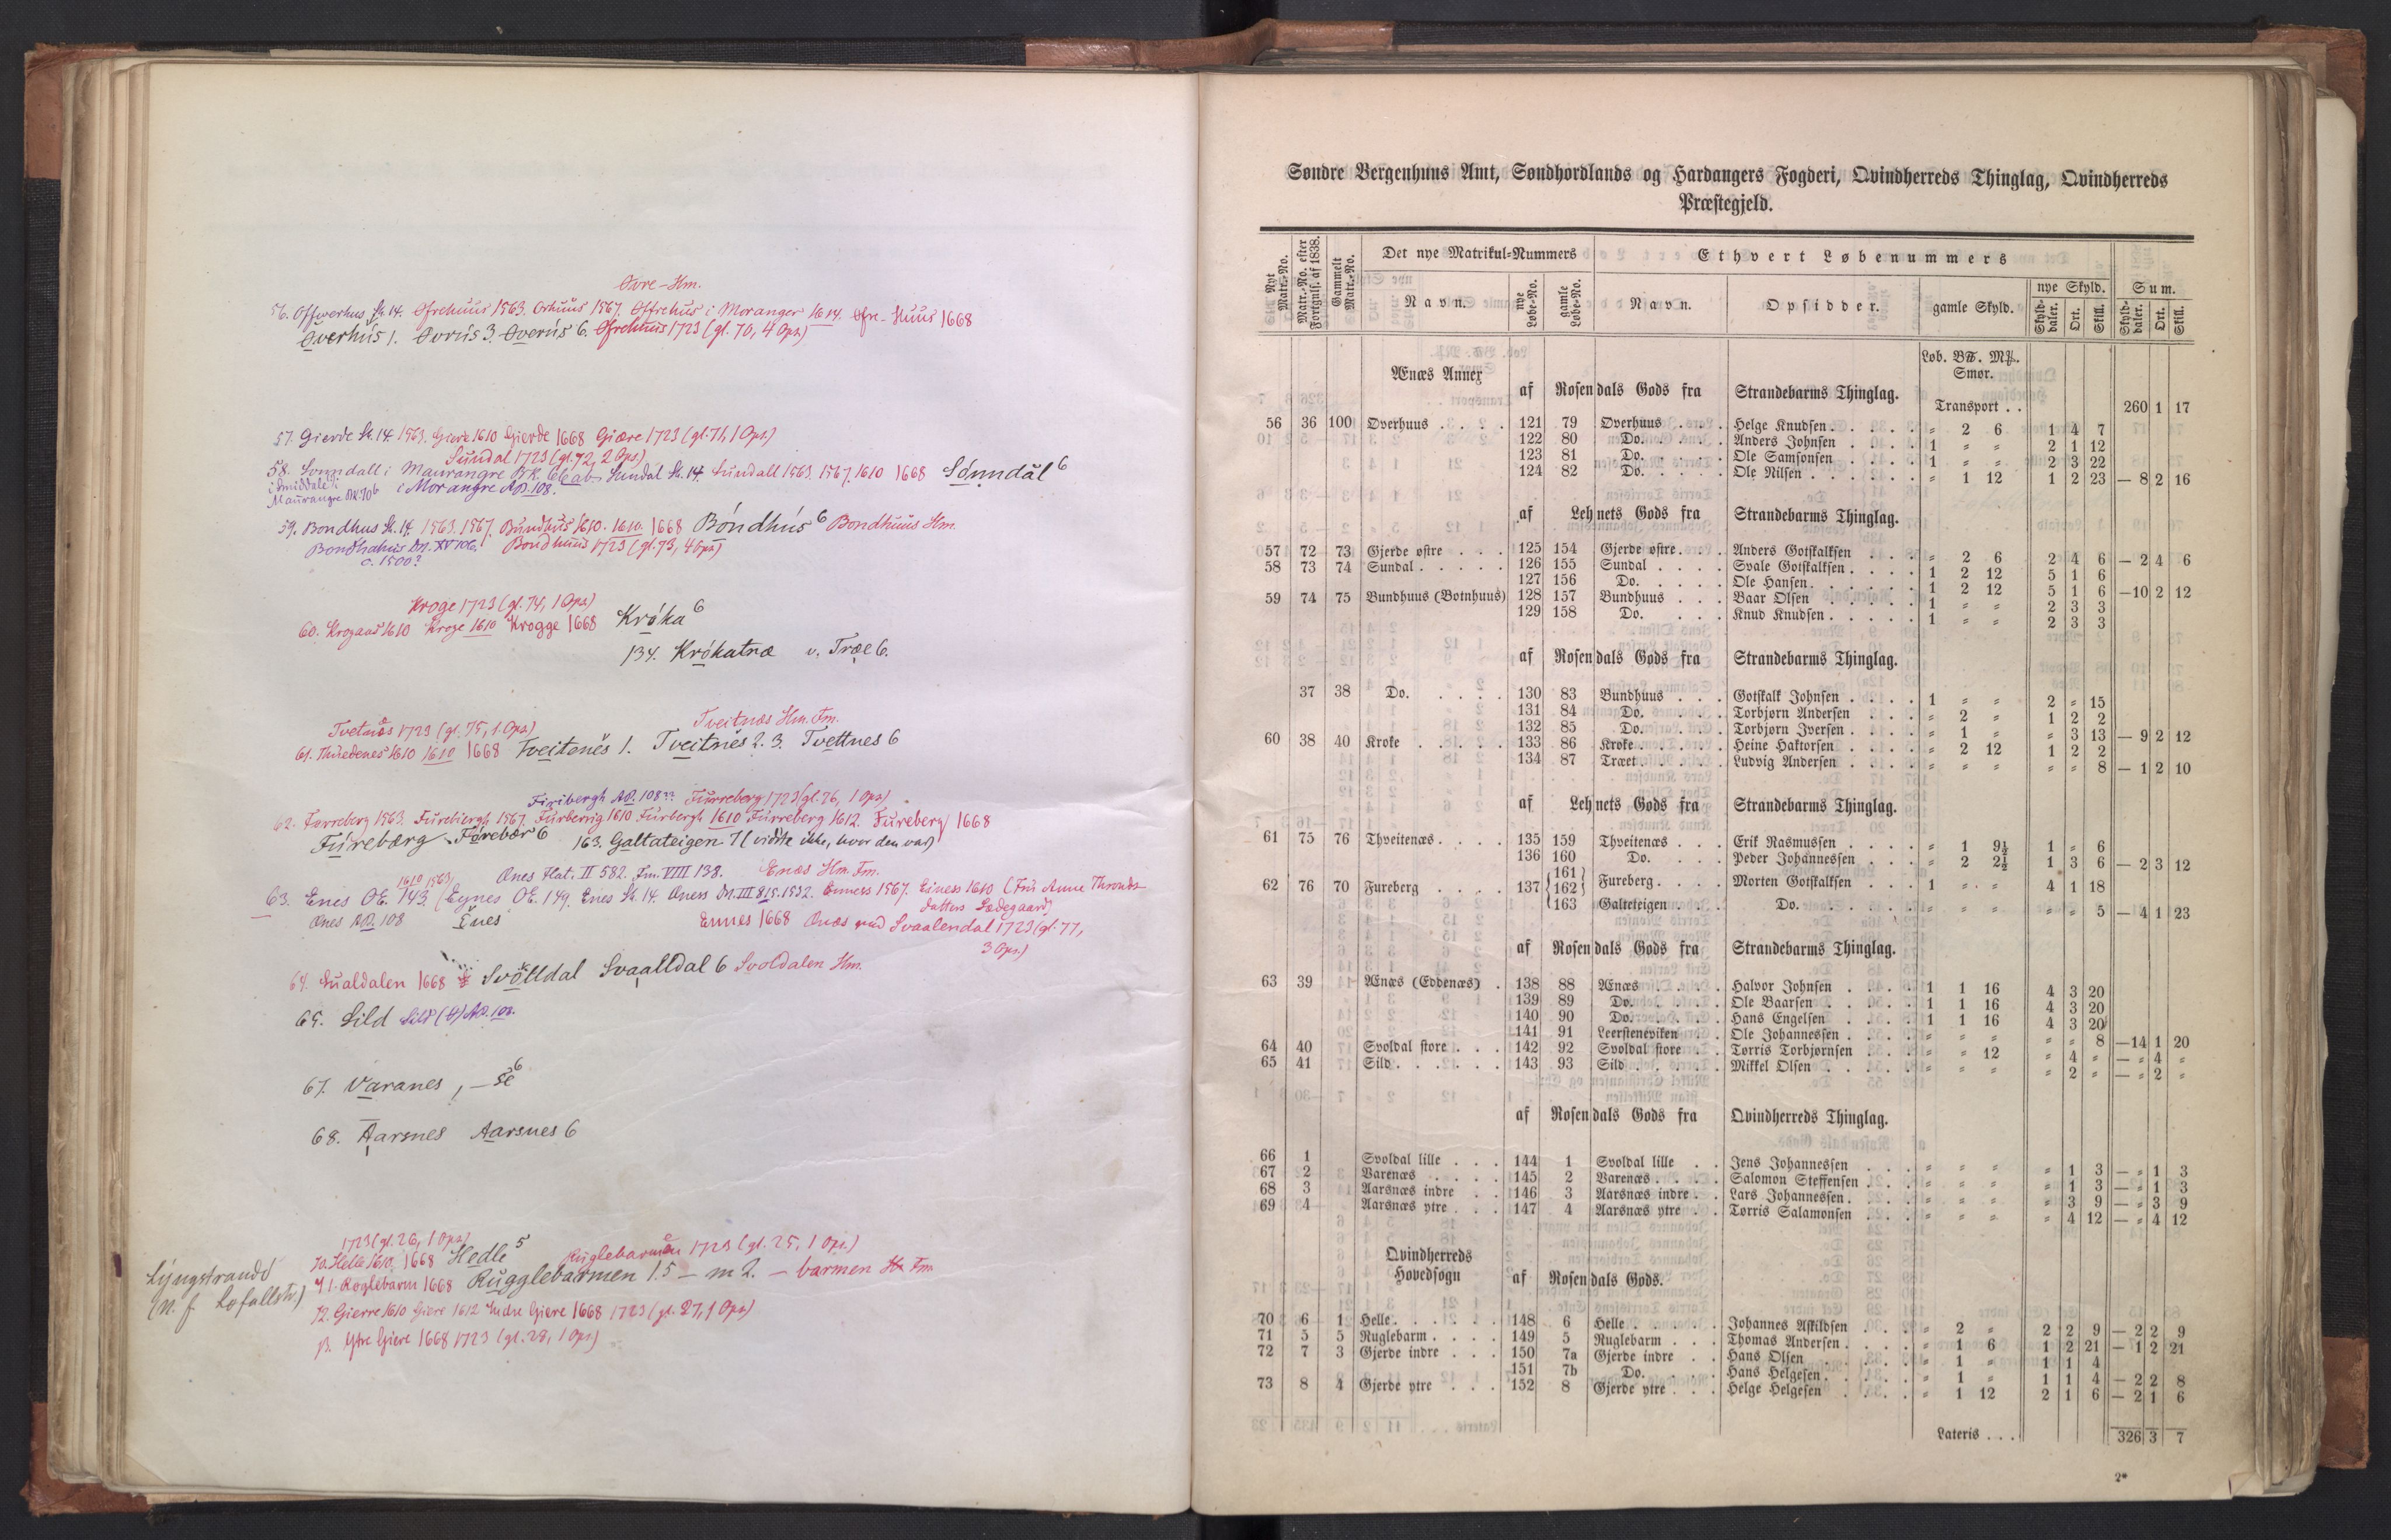 Øvre-Hm.
56. Offwerhus Sk. 14. Ofrehuus 1563. Orhuus 1567. Offrehus i Moranger 1614. Ofre-Huus 1668
Øverhús 1. Øvrús 3. Øverús 6. Ofrehuus 1723 (gl. 70, 4 Ops.)
57. Gierde Sk. 14. 1563. Giere 1610 Gierde 1668 Giære 1723 (gl. 71, 1 Ops.)
Sundal 1723 (gl. 72, 2 Ops.)
58. Sunndall i Maurangre BK. 61c ab Sundal Sk. 14. Sundall 1563. 1567. 1610 1668 Sónndål 6
Maurangre BK 70b i Morangre AB. 108.
59. Bondhus Sk. 14. 1563. 1567. Bundhus 1610. 1610. 1668 Bóndhús 6 Bondhuus Hm.
Bondhahus Dn. XV 106. Bondhuus 1723 (gl. 73, 4 Ops.)
c. 1500?
Kroge 1723 (gl. 74, 1 Ops.)
60. Krogaas 1610 Kroge 1610 Krogge 1668 Króka 6
134. Krókatræ v. Træe 6.
Tvetnæs 1723 (gl. 75, 1 Ops.) Tveitnæs Hm. Fm.
61. Thuedenes 1610 1610 1668 Tveitenes 1. Tveitnes 2. 3. Tvettnes 6
Firibergh AB. 108 Furreberg 1723 (gl. 76, 1 Ops.)
62. Furreberg 1563. Furebiergh 1567. Furberrig 1610 Furbergh 1610 Furreberg 1612. Fureberg 1668
Fúrebærg Fórebær 6 163. Galtateigen 7 (vidste ikke, hvor den var)
1610 1563 Ønes Flat. II 582. Fm. VIII 138. Enæs Hm. Fm.
63. Enes OE. 143. (Eynes OE. 149. Enes Sk. 14. Øness Dn. III 815. 1532. Enness 1567. Einess 1610 (Fru Anne Thronds-
datters Sædegaard)
Ønes AB. 108 Énes Ennes 1668 Ønæs med Svaalendal 1723 (gl. 77,
3 Ops.)
64. Sualdalen 1668 Svölldal Svaalldal 6 Svoldalen Hm.
65. Sild Sild (?) AB. 108.
67. Varanes, – se 6
68. Aarsnes Aarsnes 6
1723 (gl. 26, 1 Ops.)
70. Helle 1610. 1668 Hedle 5 Ruglebarmen 1723 (gl. 25, 1 Ops.)
71. Roglebarm 1668 Rugglebarmen 1. 5 – m 2. – barmen Fm.
72. Gierre 1610 Giere 1612 Indre Giere 1668 1723 (gl. 27, 1 Ops.)
73. Ytre Giere 1668 1723 (gl. 28, 1 Ops.)
Ljungstrand
(n. f. Lofallstr.)
Søndre Bergenhuus Amt, Søndhordlands og Hardangers Fogderi, Qvindherreds Thinglag, Qvindherreds
Præstegjeld.
Nyt Matr.-No. Matr.-No. efter Forkgnls. af 1838. Gammelt Matr.-No. Det nye Matrikul-Nummers Ethvert Løbenummers
Navn. nye Løbe-No. gamle Løbe-No. Navn. Opsidder. gamle Skyld. nye Skyld. Sum.
Skylddaler. Ort. Skill. Skylddaler. Ort. Skill.
Løb. B℔. M℔.
Smør.
Ænæs Annex af Rosendals Gods fra Strandebarms Thinglag.
Transport . . 260 1 17
56 36 100 Overhuus . . . . 121 79 Overhuus . . . Helge Knudsen . . . . . " 2 6 1 4 7
122 80 Do. . . . . Anders Johnsen . . . . 1 " " 2 1 12
123 81 Do. . . . . Ole Samsonsen . . . . 1 " " 2 3 22
124 82 Do. . . . . Ole Nilsen . . . . . . " 1 12 1 2 23 — 8 2 16
af Lehnets Gods fra Strandebarms Thinglag.
57 72 73 Gjerde østre . . . 125 154 Gjerde østre . . . Anders Gotskalksen . . . " 2 6 2 4 6 — 2 4 6
58 73 74 Sundal . . . . . 126 155 Sundal . . . . Svale Gotskalksen . . . . 1 2 12 5 1 6
127 156 Do. . . . . Ole Hansen . . . . . . 1 2 12 5 1 6 —10 2 12
59 74 75 Bundhuus (Botnhuus) 128 157 Bundhuus . . . Baar Olsen . . . . . 1 " " 2 3 3
129 158 Do. . . . Knud Knudsen . . . . . 1 " " 2 3 3
af Rosendals Gods fra Strandebarms Thinglag.
37 38 Do. . . . . 130 83 Bundhuus . . . Gotskalk Johnsen . . . . 1 " " 2 " 15
131 84 Do. . . . . Torbjørn Andersen . . . " 2 " 1 2 2
132 85 Do. . . . . Torbjørn Iversen . . . . " 1 " " 3 13 — 9 2 12
60 38 40 Kroke . . . . . 133 86 Kroke . . . . . Heine Haktorsen . . . . " 2 12 1 2 2
134 87 Træet . . . . . Ludvig Andersen . . . . " " " " " 8 — 1 2 10
af Lehnets Gods fra Strandebarms Thinglag.
61 75 76 Thveitenæs . . . . 135 159 Thveitenæs . . . Erik Rasmussen . . . . " 1 9½ 1 " 6
136 160 Do. . . . Peder Johannessen . . . " 2 2½ 1 3 6 — 2 3 12
62 76 70 Fureberg . . . . 137 {161 162} Fureberg . . . . Morten Gotskalksen . . . 1 " " 4 1 18
163 Galteteigen . . . Do. . . . . . . " " " " " 5 — 4 1 23
af Rosendals Gods fra Strandebarms Thinglag.
63 39 Ænæs (Eddenæs) . 138 88 Ænæs . . . . Halvor Johnsen . . . . 1 1 16 4 3 20
139 89 Do. . . . . Ole Baarsen . . . . . 1 1 16 4 3 20
140 90 Do. . . . . Hans Engelsen . . . . 1 1 16 4 3 20
141 91 Leerstenviken . . Ole Johannessen . . . . " " " " " 8 —14 1 20
64 40 Svoldal store . . . 142 92 Svoldal store . . Tørris Torbjørnsen . . . " " 12 " 4 " — " 4 "
65 41 Sild . . . . . . 143 93 Sild . . . . . Mikkel Olsen . . . . . " " " " 2 " — " 2 "
af Rosendals Gods fra Qvindherreds Thinglag.
66 1 Svoldal lille . . . 144 1 Svoldal lille . . Jens Johannessen . . . " " " " 1 3 — " 1 3
67 2 Varenæs . . . . 145 2 Varenæs . . . . Salomon Steffensen . . . " " " " 1 3 — " 1 3
68 3 Aarsnæs indre . . 146 3 Aarsnæs indre . . Lars Johannessen . . . . " " " " 3 9 — " 3 9
69 4 Aarsnæs ytre . . . 147 4 Aarsnæs ytre . . Tørris Salamonsen . . . " " " " 4 12 — " 4 12
Qvindherreds
Hovedsogn af Rosendals Gods.
70 6 1 Helle . . . . . . 148 6 Helle . . . . . Johannes Askildsen . . . " 2 " 2 2 9 — 2 2 9
71 5 5 Ruglebarm . . . . 149 5 Ruglebarm . . . Thomas Andersen . . . . " 1 6 1 2 21 — 1 2 21
72 7 3 Gjerde indre . . . 150 7a Gjerde indre . . Hans Olsen . . . . . " 1 " 1 1 4
151 7b Do. . . . . Hans Helgesen . . . . . " 1 " 1 1 4 — 2 2 8
73 8 4 Gjerde ytre . . . 152 8 Gjerde ytre . . . Helge Helgesen . . . . " 1 12 2 1 6 — 2 1 6
Lateris . . . 326 3 7
2*